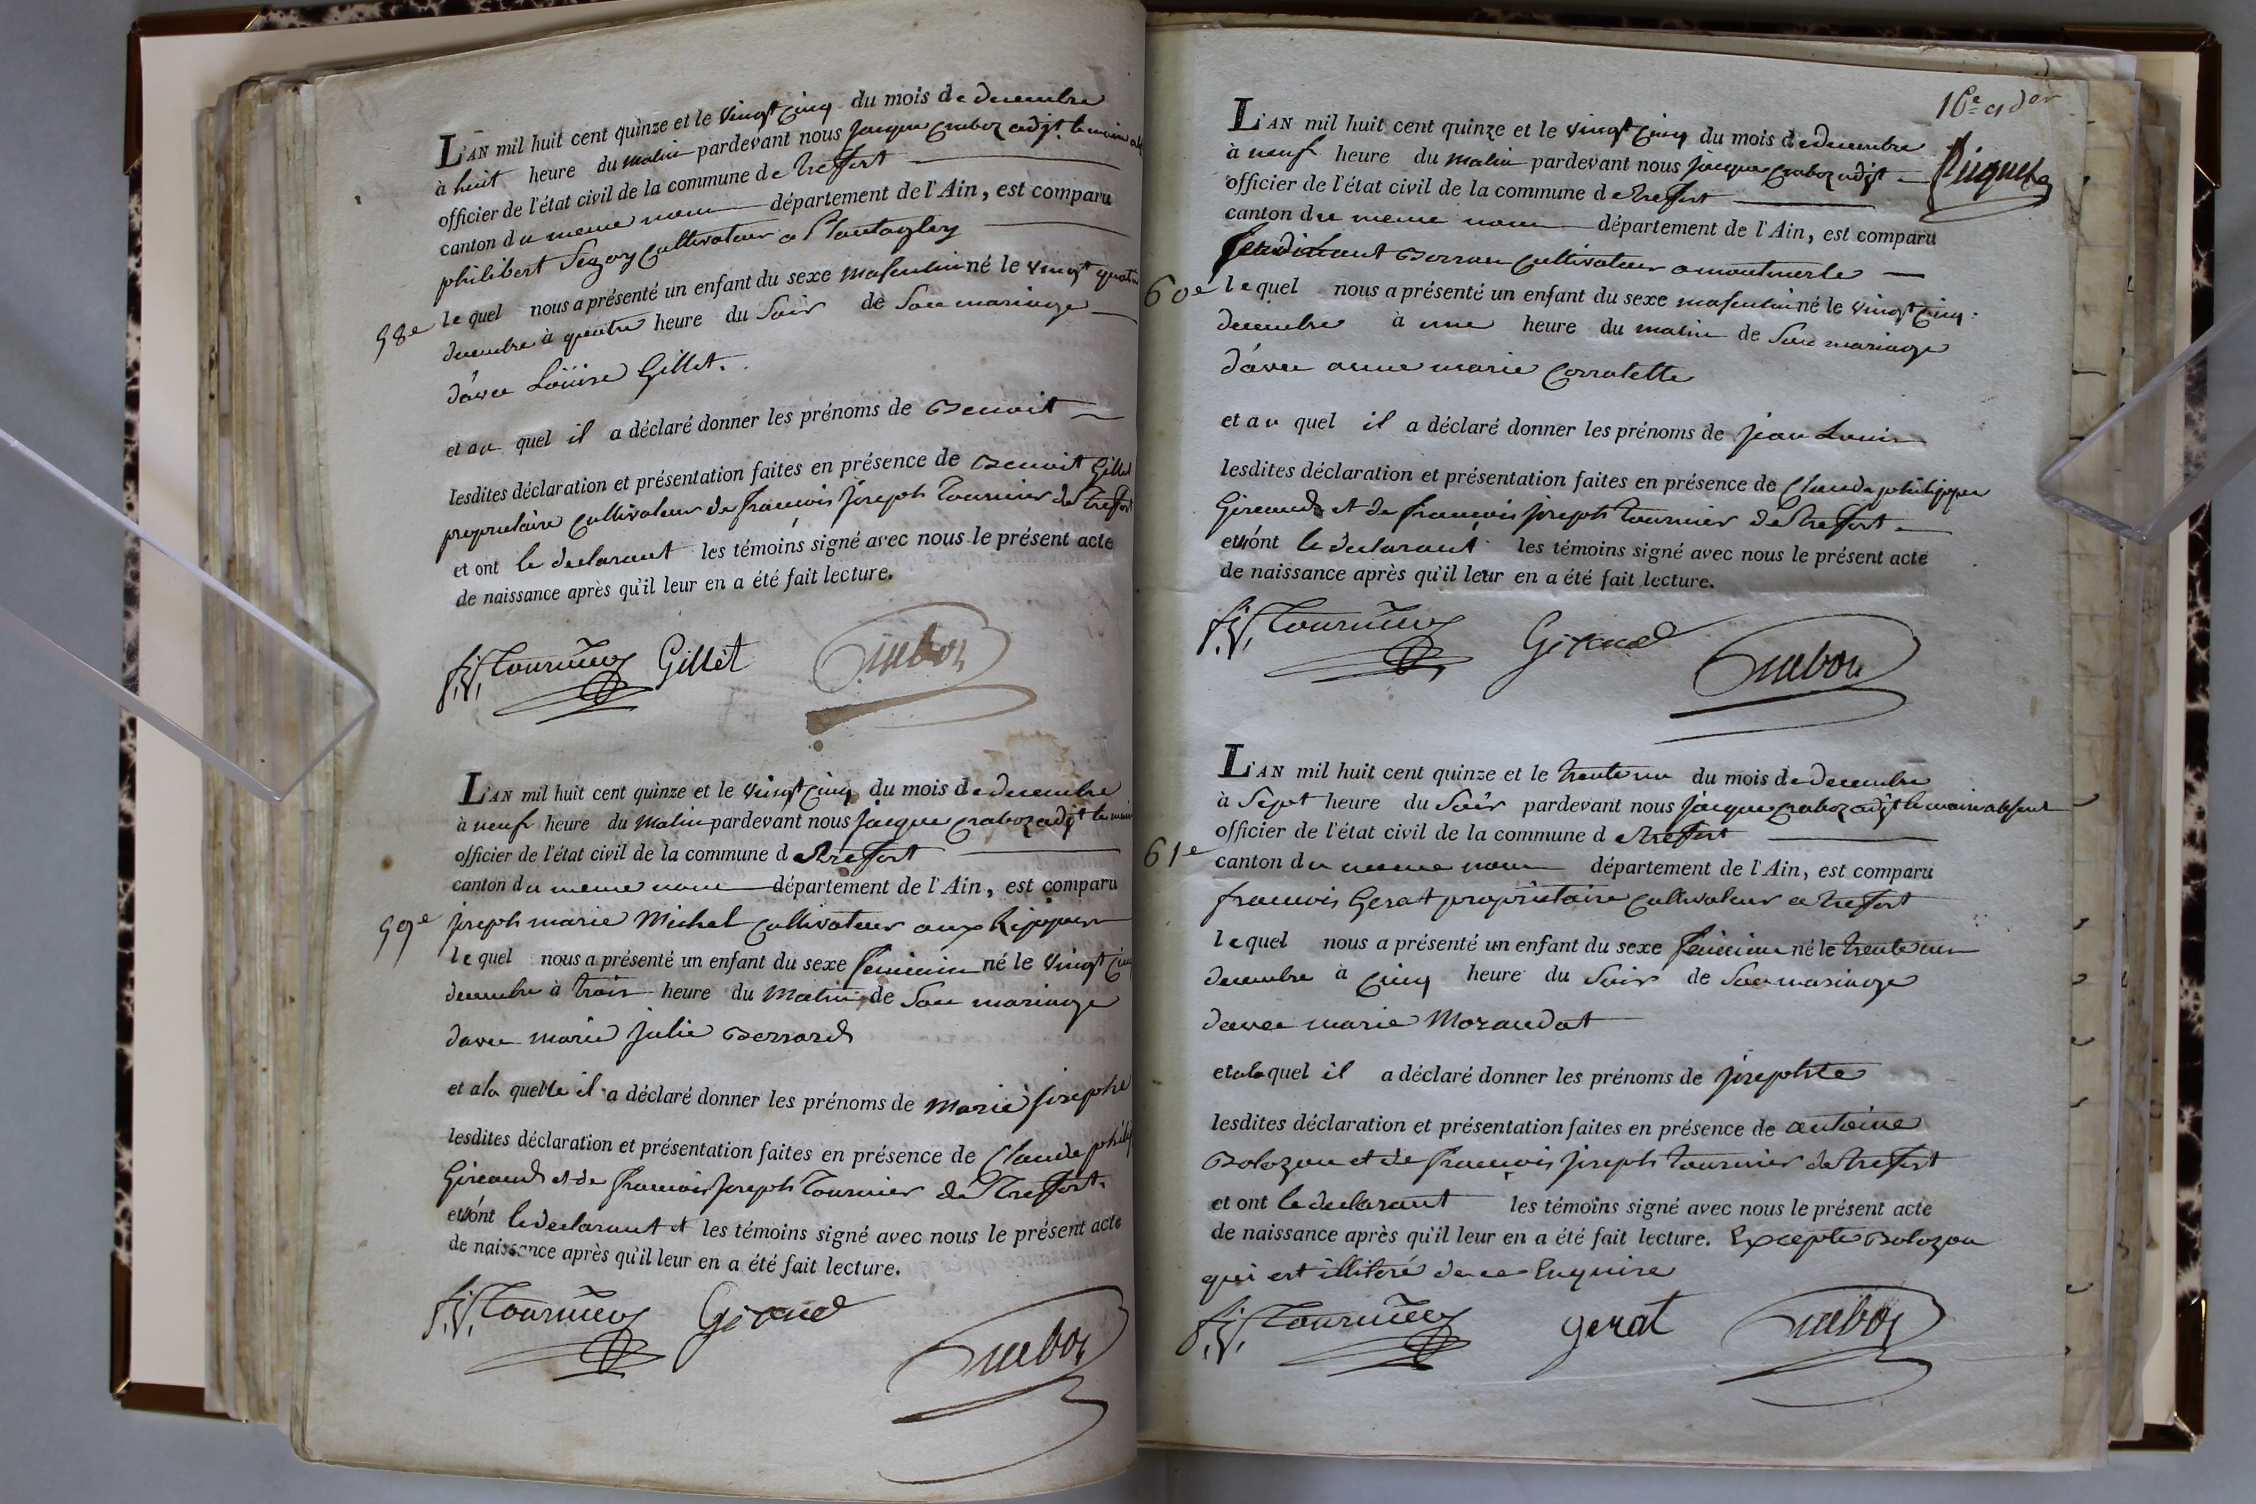 L'AN mil huit cent quinze et le vingt cinq du mois de decembre
à huit heure du matin pardevant nous jacque craboz adjt le maire
officier de l'état civil de la commune de treffort
canton du meme nom département de l'Ain, est comparu
philibert cultivateur a
58e
le quel nous a présenté un enfant du sexe masculin né le vingt quatre
decembre à quatre heure du soir de son mariage
d'avec Loüise Gillet.
et au quel il a déclaré donner les prénoms de Benoit
lesdites déclaration et présentation faites en présence de Benoit Gillet
proprietaire cultivateur de francois joseph tournier de treffort
et ont le declarant les témoins signé avec nous le présent acte
de naissance après qu'il leur en a été fait lecture.
f. j. Tournier Gillet Craboz
L'AN mil huit cent quinze et le vingt cinq du mois de decembre
à neuf heure du matin pardevant nous jacque craboz adjt le maire
officier de l'état civil de la commune de treffort
canton du meme nom département de l'Ain, est comparu
59e
joseph marie Michel cultivateur aux Rippes
le quel nous a présenté un enfant du sexe feminin né le vingt cinq
decembre à trois heure du matin de son mariage
davec marie julie Berrard
et a la quelle il a déclaré donner les prénoms de marie josephe
lesdites déclaration et présentation faites en présence de Claude
Giraud et de francois joseph tournier de Treffort.
et ont le declarant et les témoins signé avec nous le présent acte
de naissance après qu'il leur en a été fait lecture.
f. j. Tournier Giraud Craboz
16e et der
L'AN mil huit cent quinze et le vingt cinq du mois de decembre
à neuf heure du matin pardevant nous jacque craboz adjt
officier de l'état civil de la commune de treffort
canton du meme nom département de l'Ain, est comparu
cultivateur a montmerle
60e
le quel nous a présenté un enfant du sexe masculin né le vingt cinq
decembre à une heure du matin de son mariage
d'avec anne marie
et au quel il a déclaré donner les prénoms de jean Louis
lesdites déclaration et présentation faites en présence de Claude philippe
Giraud et de francois joseph tournier de treffort
et ont le declarant les témoins signé avec nous le présent acte
de naissance après qu'il leur en a été fait lecture.
f. j. Tournier Giraud Craboz
L'AN mil huit cent quinze et le trente un du mois de decembre
à sept heure du soir pardevant nous jacque craboz adjt le maire absent
officier de l'état civil de la commune de treffort
61e
canton du meme nom département de l'Ain, est comparu
francois Gerat proprietaire cultivateur a treffort
le quel nous a présenté un enfant du sexe feminin né le trente un
decembre à cinq heure du soir de son mariage
davec marie Morandat
et a la quel il a déclaré donner les prénoms de josephte
lesdites déclaration et présentation faites en présence de antoine
Bolozon et de francois joseph tournier de treffort
et ont le declarant les témoins signé avec nous le présent acte
de naissance après qu'il leur en a été fait lecture. Excepte Bolozon
qui est illiteré de ce Enquis
f. j. Tournier gerat Craboz